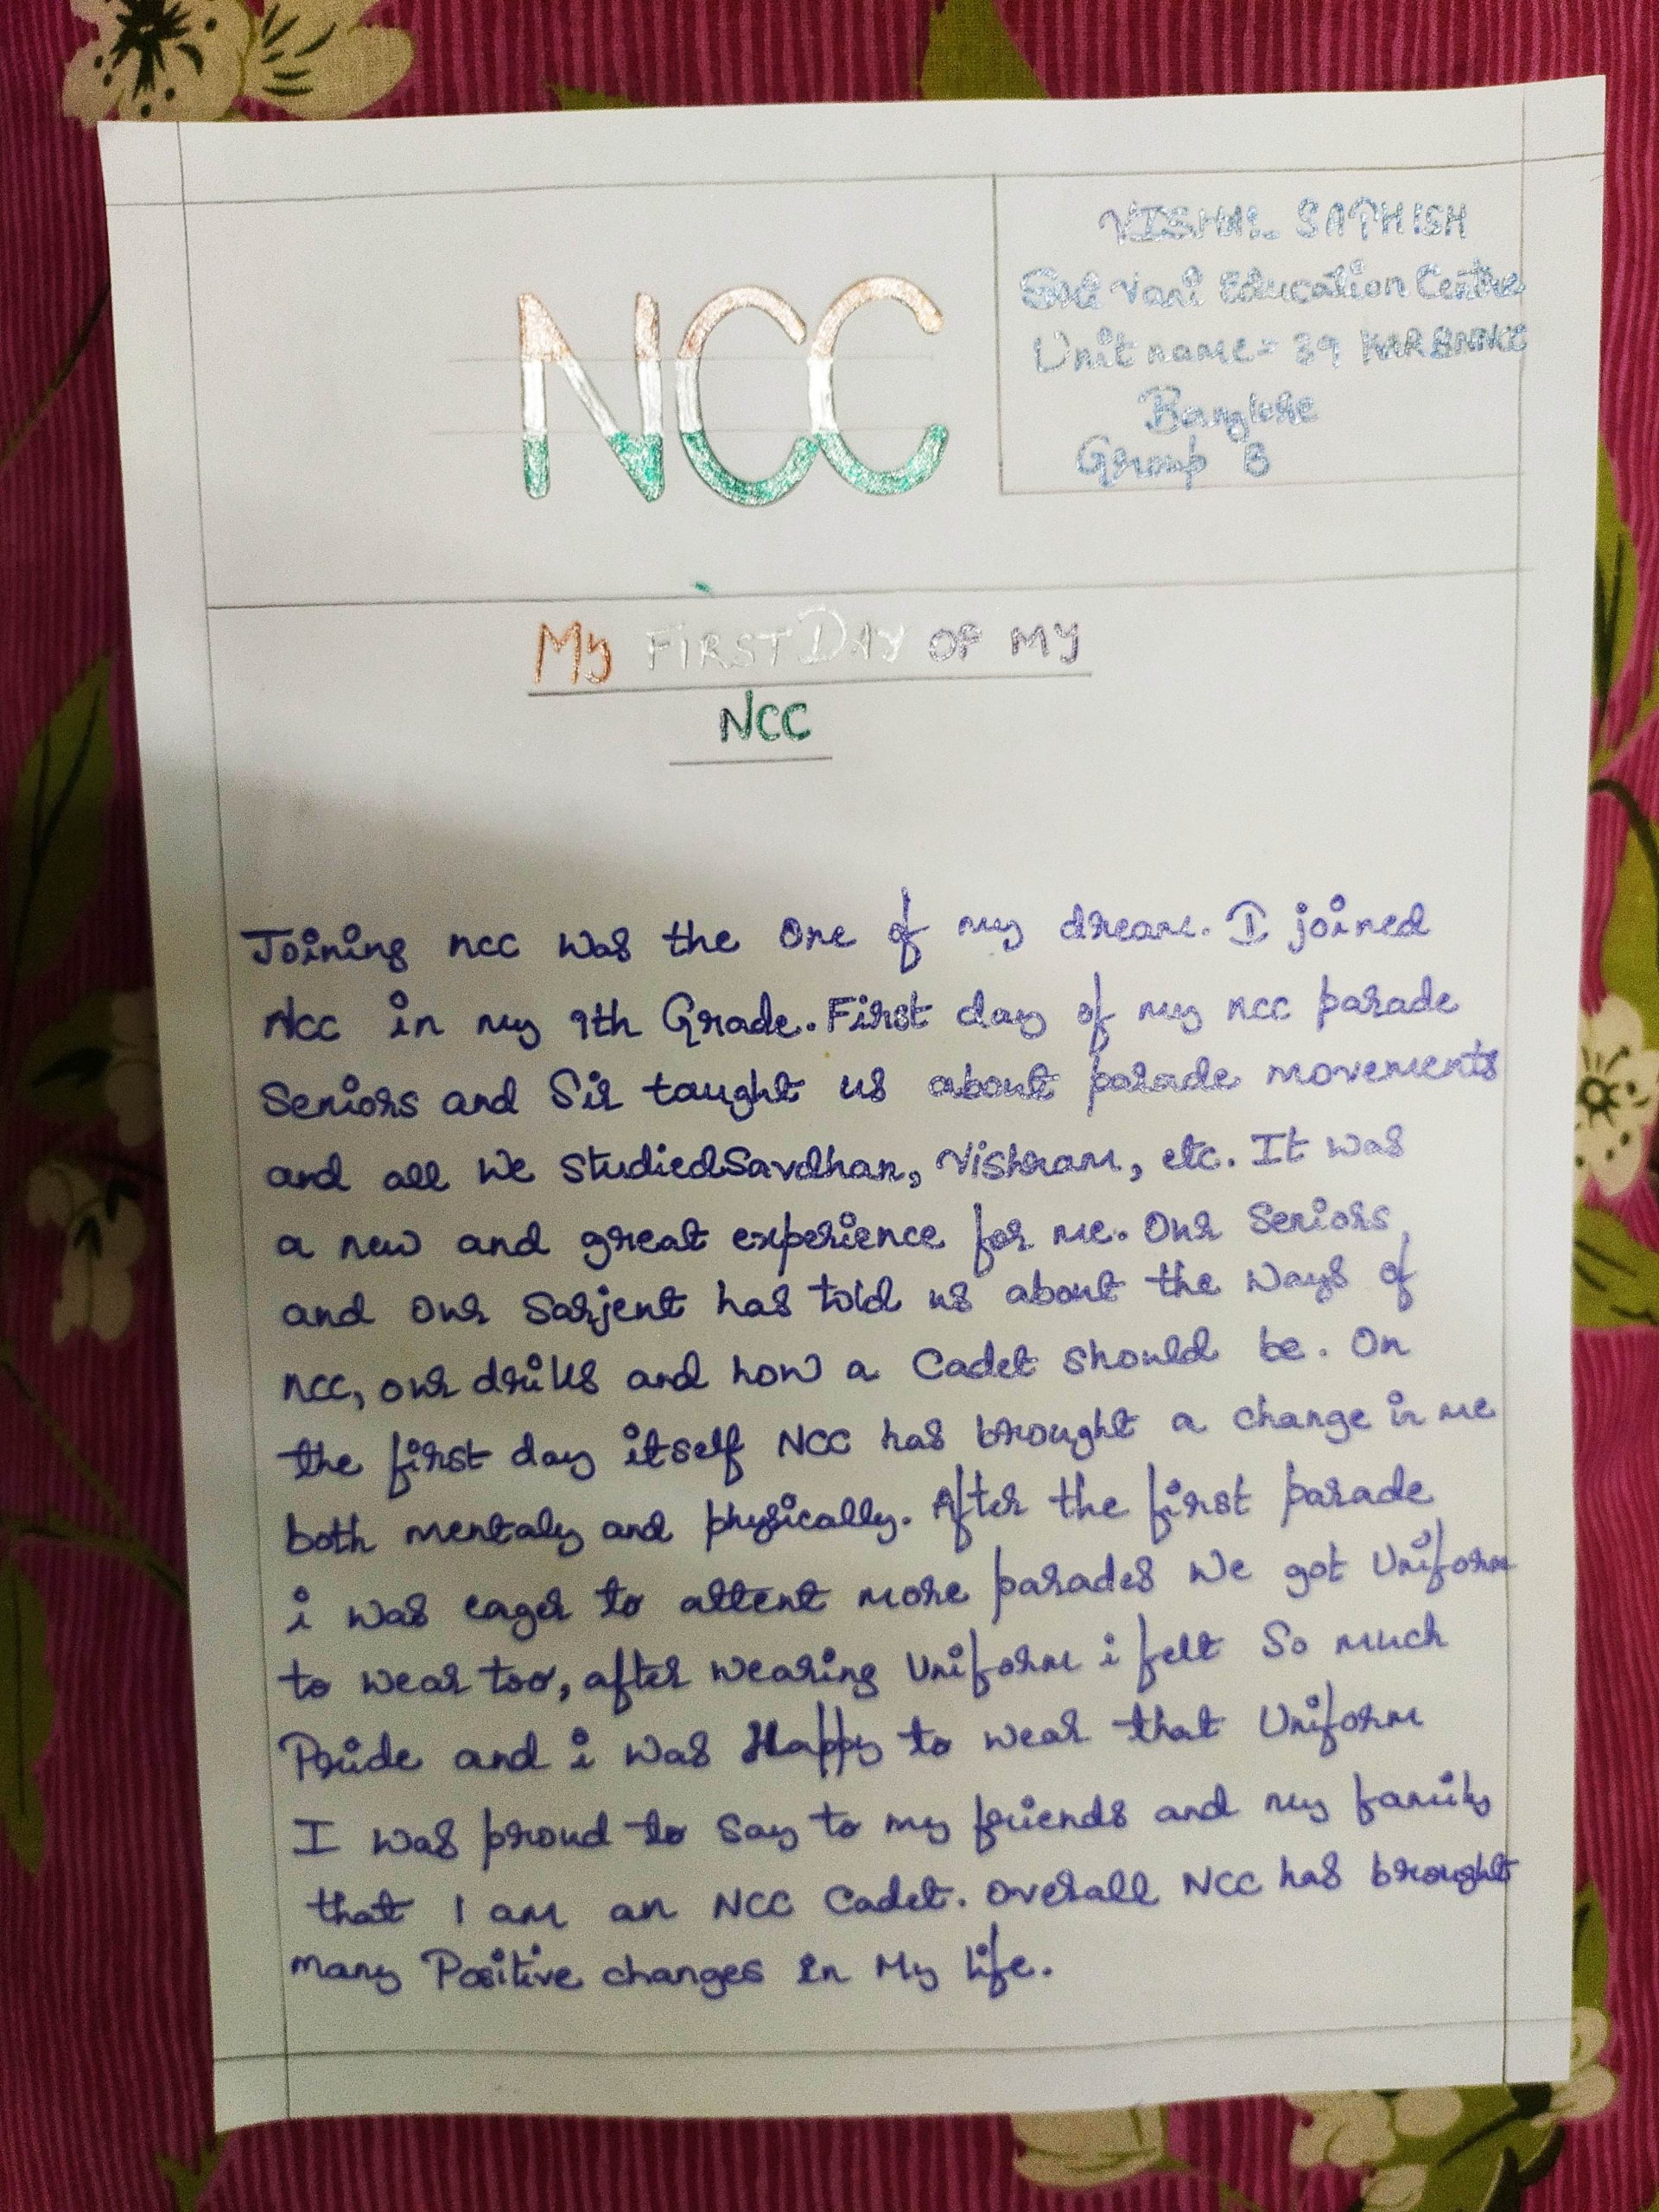 NCC
VISHAL SATHISH
Sri Vani Education Centre
Unit name = 39 KAR BN NCC
Banglore
Group B
My FIRST DAY OF MY
NCC
Joining ncc was the one of my dream. I joined
Ncc in my 9th Grade. First day of my ncc parade
Seniors and Sir taught us about parade movements
and all we studied Savdhan, Vishram, etc. It was
a new and great experience for me. Our Seniors
and our Sarjent has told us about the ways of
ncc, our drills and how a Cadet should be. On
the first day itself NCC has brought a change in me
both mentaly and physically. After the first parade
i was eager to attent more parades we got Uniform
to wear too, after wearing Uniform i felt So much
Pride and i was Happy to wear that Uniform
I was proud to say to my friends and my family
that I am an NCC Cadet. Overall NCC has brought
many Positive changes in My life.